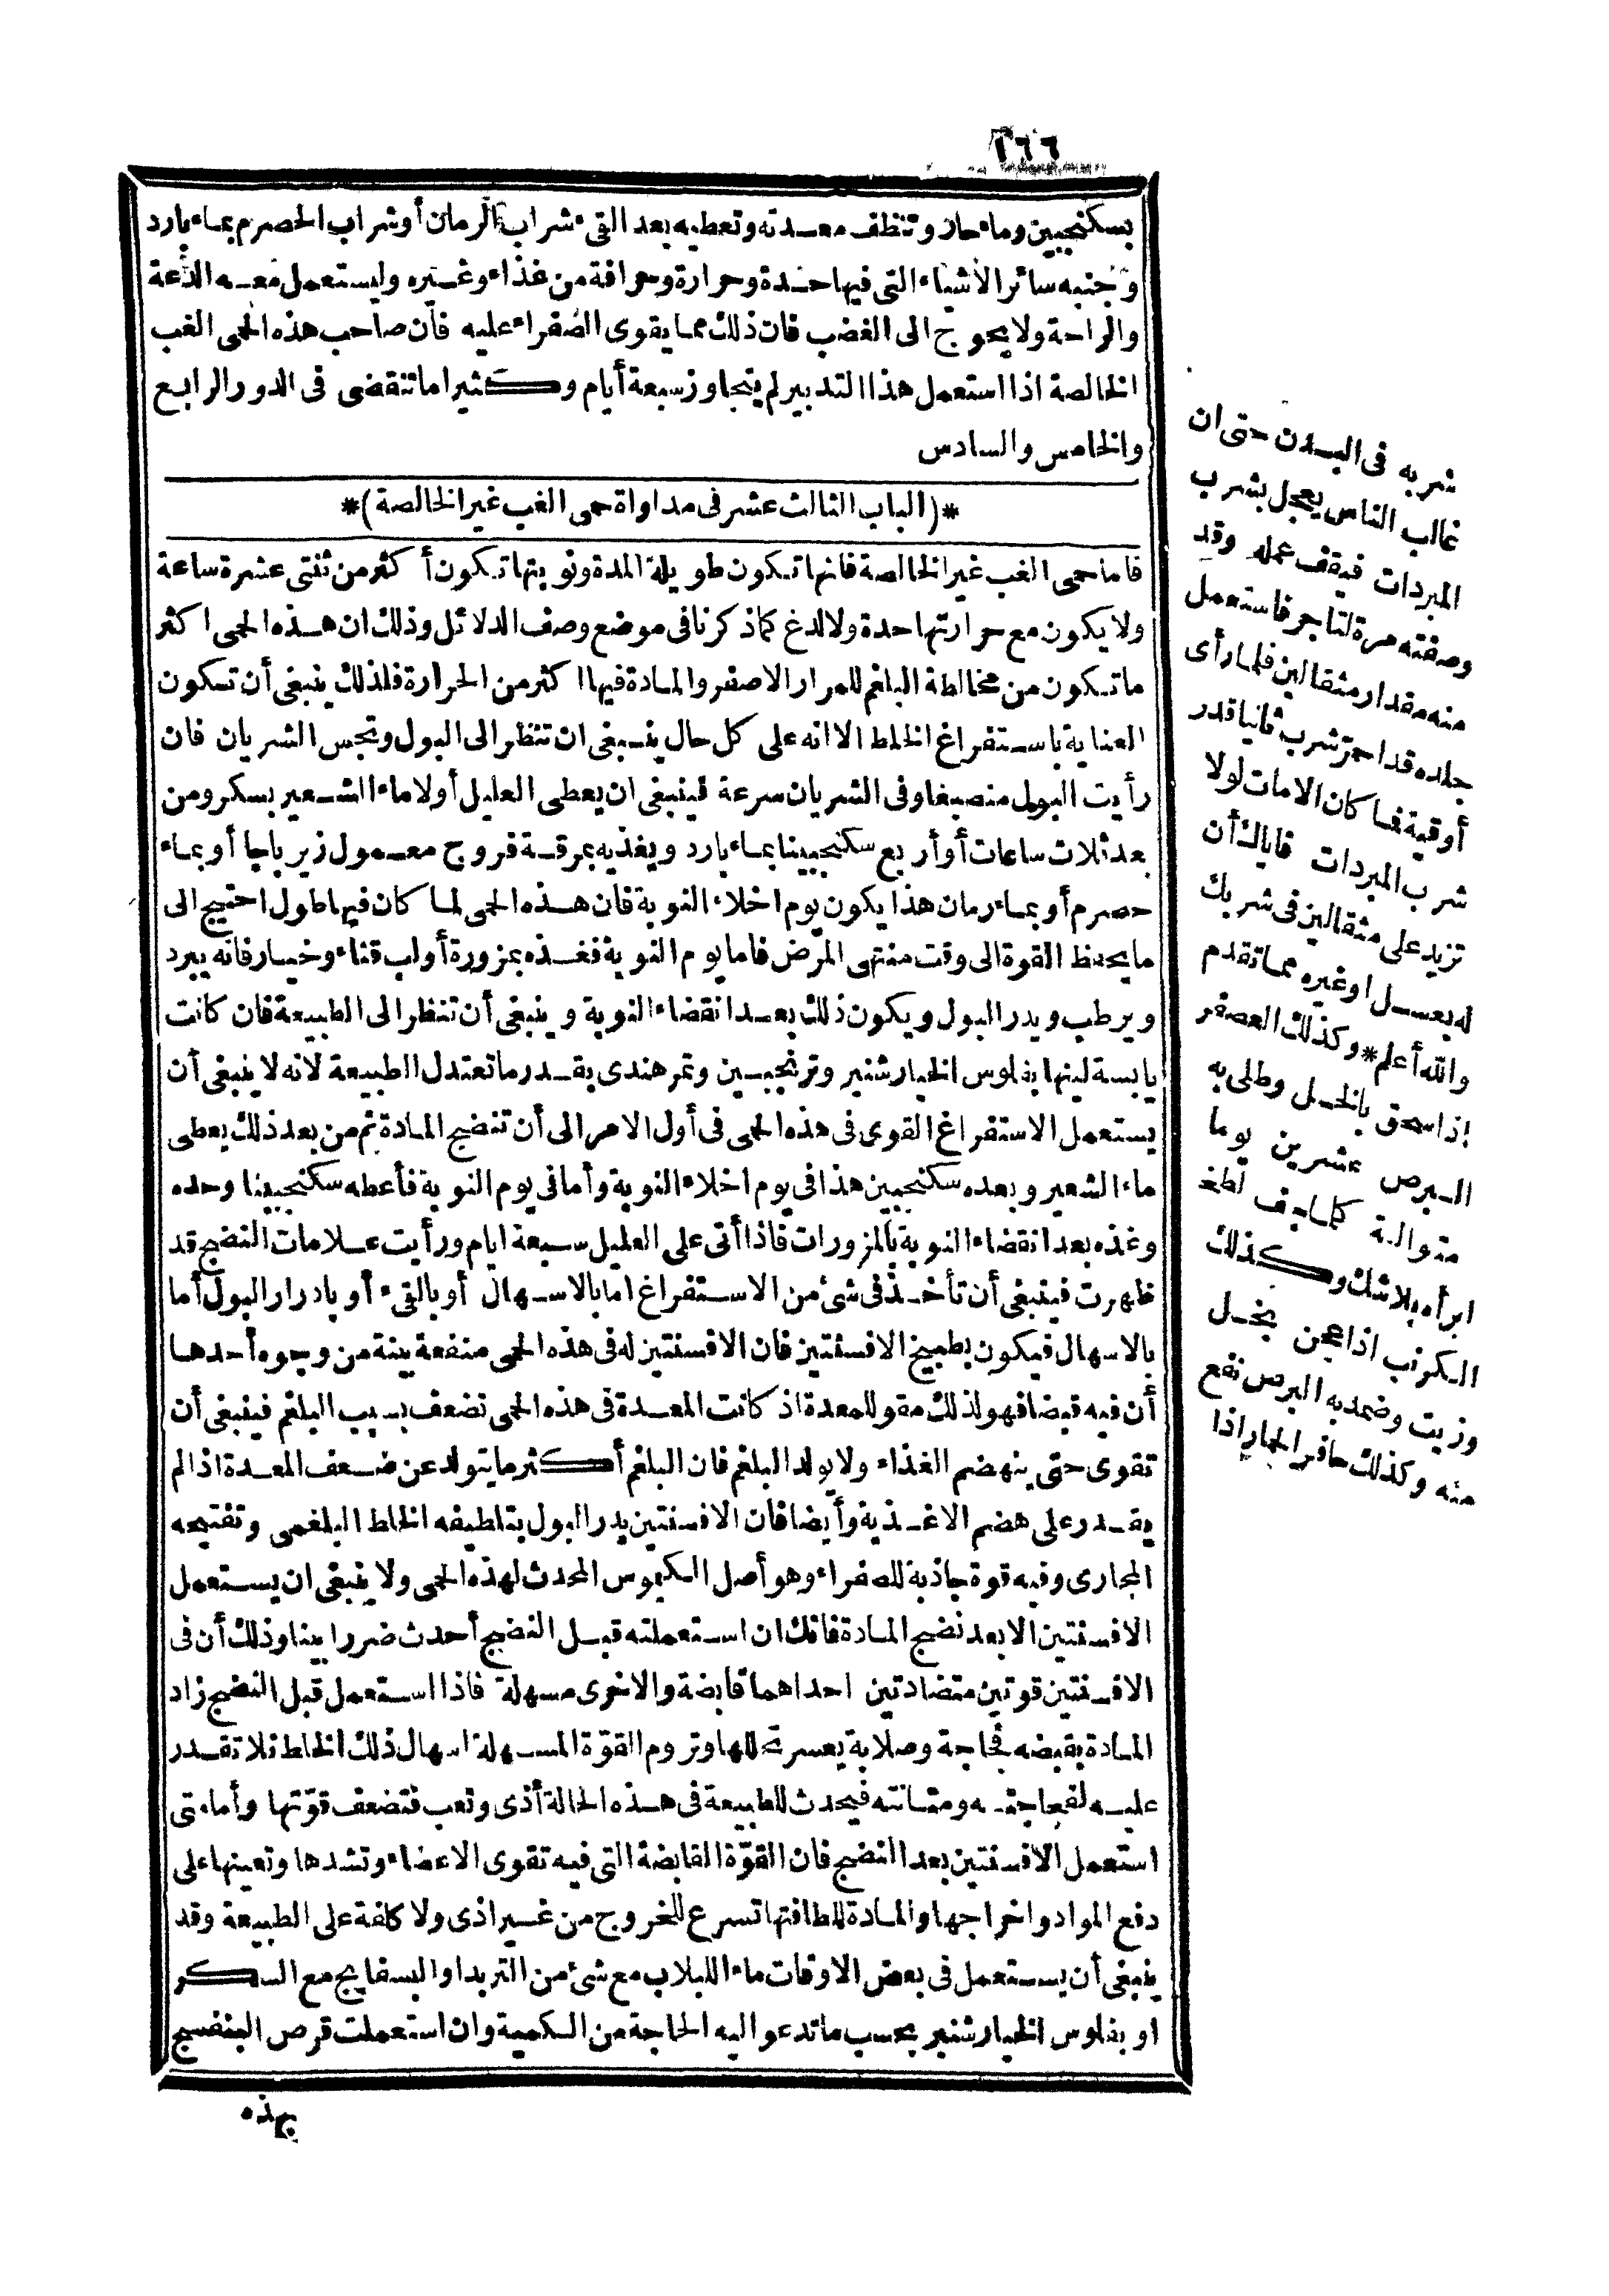 ٢٦٦
بسكنجبين وماء حار وتنظف معدته وتعطيه بعد القىء شراب الرمان أو شراب الحصرم بماء بارد
وتجنبه سائر الأشياء التى فيها حدة وحرارة وحرافة من غذاء وغيره وليستعمل معه الدعة
والراحة ولا يحوج الى الغضب فان ذلك مما يقوى الصفراء عليه فان صاحب هذه الحمى الغب
الخالصة اذا استعمل هذا التدبير لم يتجاوز سبعة أيام وكثيرا ما تنقضى فى الدور الرابع
والخامس والسادس
*(الباب الثالث عشر فى مداواة حمى الغب غير الخالصة)*
فاما حمى الغب غير الخالصة فانها تكون طويلة المدة ونوبتها تكون أكثر من ثنتى عشرة ساعة
ولا يكون مع حرارتها حدة ولا لدغ كما ذكرنا فى موضع وصف الدلائل وذلك ان هذه الحمى اكثر
ما تكون من مخالطة البلغم للمرار الاصفر والمادة فيها اكثر من الحرارة فلذلك ينبغى أن تكون
العناية باستفراغ الخلط الا انه على كل حال ينبغى ان تنظر الى البول وتجس الشريان فان
رأيت البول منصبغا وفى الشريان سرعة فينبغى ان يعطى العليل أولا ماء الشعير بسكر ومن
بعد ثلاث ساعات أو أربع سكنجبينا بماء بارد ويغذيه بمرقة فروج معمول زيرباجا أو بماء
حصرم أو بماء رمان هذا يكون يوم اخلاء النوبة فان هذه الحمى لما كان فيها طول احتيج الى
ما يحفظ القوة الى وقت منتهى المرض فاما يوم النوبة فغذه بمزورة أو لب قثاء وخيار فانه يبرد
ويرطب ويدر البول ويكون ذلك بعد انقضاء النوبة وينبغى أن تنظر الى الطبيعة فان كانت
يابسة لينها بفلوس الخيار شنبر وترنجبين وتمرهندى بقدر ما تعتدل الطبيعة لانه لا ينبغى أن
يستعمل الاستفراغ القوى فى هذه الحمى فى أول الامر الى أن تنضج المادة ثم من بعد ذلك يعطى
ماء الشعير وبعده سكنجبين هذا فى يوم اخلاء النوبة وأما فى يوم النوبة فأعطه سكنجبينا وحده
وغذه بعد انقضاء النوبة بالمزورات فاذا أتى على العليل سبعة ايام ورأيت علامات النضج قد
ظهرت فينبغى أن تأخذ فى شئ من الاستفراغ اما بالاسهال أو بالقىء أو بادرار البول أما
بالاسهال فيكون بطبيخ الافسنتين فان الافسنتين له فى هذه الحمى منفعة بينة من وجوه أحدها
أن فيه قبضا فهو لذلك مقو للمعدة اذ كانت المعدة فى هذه الحمى تضعف بسبب البلغم فينبغى أن
تقوى حتى ينهضم الغذاء ولا يولد البلغم فان البلغم أكثر ما يتولد عن ضعف المعدة اذا لم
يقدر على هضم الاغذية وأيضا فان الافسنتين يدر البول بتلطيفه الخلط البلغمى وتفتيحه
المجارى وفيه قوة جاذبة للصفراء وهو أصل الكيموس المحدث لهذه الحمى ولا ينبغى ان يستعمل
الافسنتين الا بعد نضج المادة فانك ان استعملته قبل النضج أحدث ضررا بينا وذلك أن فى
الافسنتين قوتين متضادتين احداهما قابضة والاخرى مسهلة فاذا استعمل قبل النضج زاد
المادة بقبضه فجاجة وصلابة يعسر تحللها وتروم القوّة المسهلة اسهال ذلك الخلط فلا تقدر
عليه لفجاجته ومتانته فيحدث للطبيعة فى هذه الحالة أذى وتعب فتضعف قوّتها وأما متى
استعمل الافسنتين بعد النضج فان القوّة القابضة التى فيه تقوى الاعضاء وتشدها وتعينها على
دفع المواد واخراجها والمادة للطافتها تسرع للخروج من غير اذى ولا كلفة على الطبيعة وقد
ينبغى أن يستعمل فى بعض الاوقات ماء اللبلاب مع شئ من التربد او البسفايج مع السكر
او بفلوس الخيار شنبر بحسب ما تدعو اليه الحاجة من الكمية وان استعملت قرص البنفسج
بهذه
شربه فى البدن حتى ان
غالب الناس يعجل بشرب
المبردات فيقف عمله وقد
وصفته مرة لتاجر فاستعمل
منه مقدار مثقالين فلما رأى
جلده قد احمر شرب ثانيا قدر
أوقية فما كان الا مات لولا
شرب المبردات فاياك أن
تزيد على مثقالين فى شربك
له بعسل او غيره مما تقدم
والله أعلم * وكذلك العصفر
إذا سحق بالخل وطلى به
البرص عشرين يوما
متوالية كلما جف لطخ
ابرأه بلا شك وكذلك
الكرنب اذا عجن بخل
وزيت وضمد به البرص نفع
منه وكذلك حافر الحمار اذا